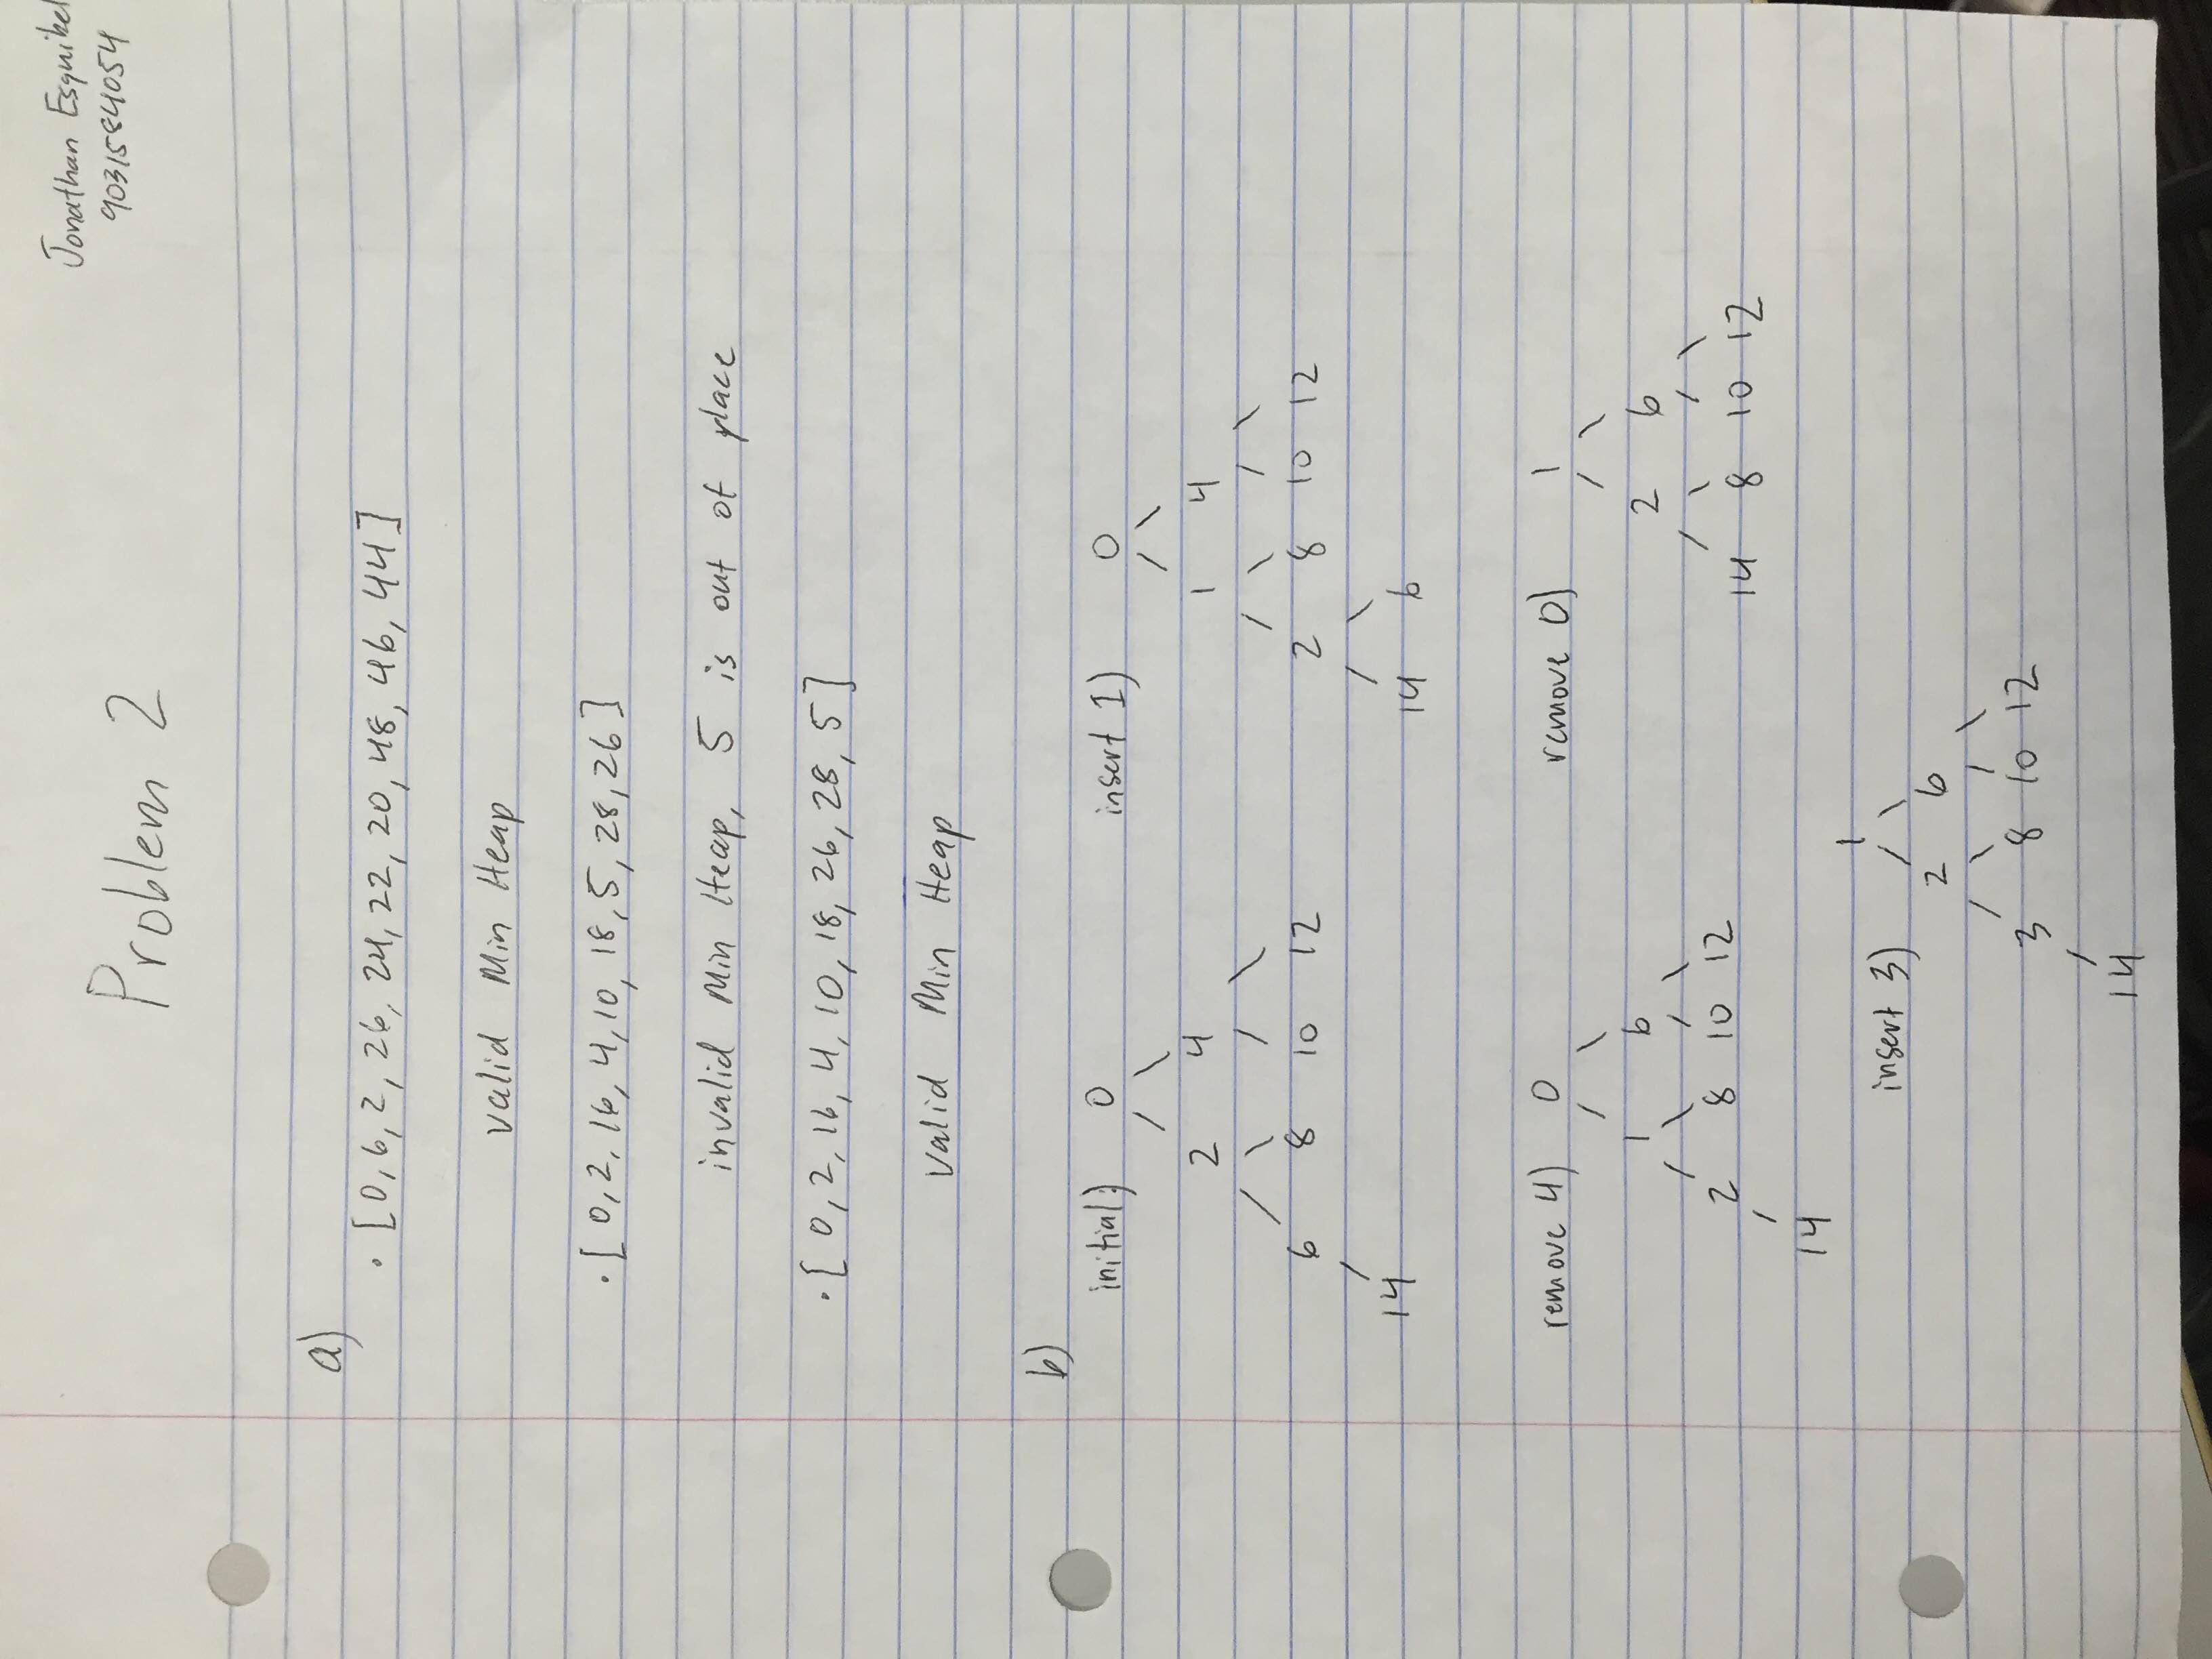 Jonathan Esquibel
9031584054
Problem 2
a)
· [0, 6, 2, 26, 24, 22, 20, 48, 46, 44]
valid Min Heap
· [0, 2, 16, 4, 10, 18, 5, 28, 26]
invalid Min Heap, 5 is out of place
· [0, 2, 16, 4, 10, 18, 26, 28, 5]
Valid Min Heap
b)
initial:) 0
2 4
6 8 10 12
14
insert 1) 0
1 4
2 8 10 12
14 6
remove 4) 0
1 6
2 8 10 12
14
remove 0) 1
2 6
14 8 10 12
insert 3) 1
2 6
3 8 10 12
14